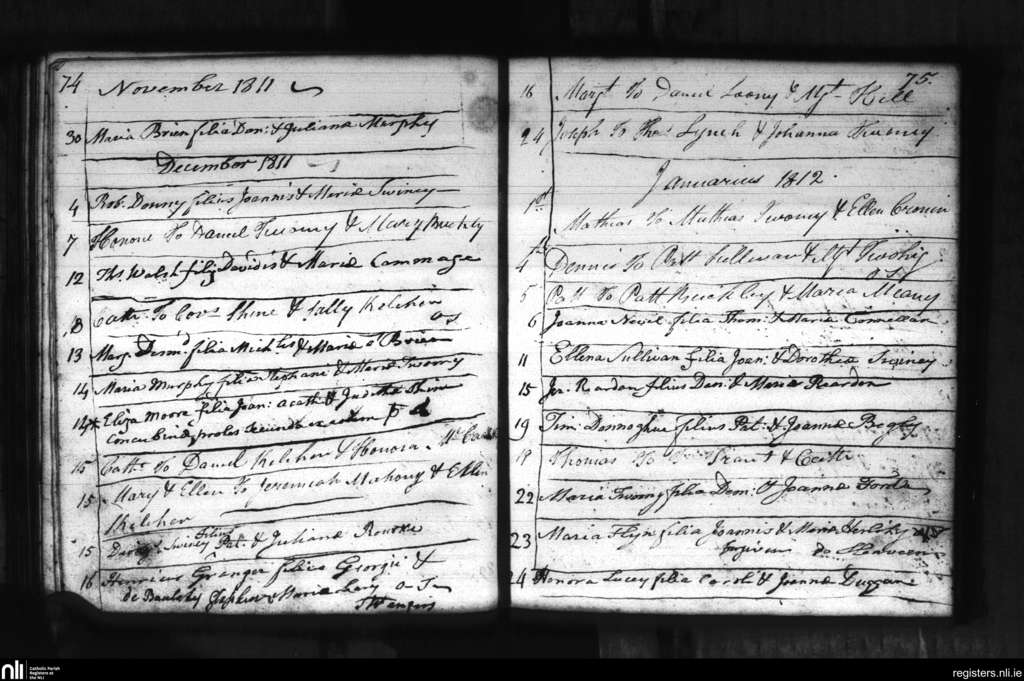 74 November 1811
30 Maria Brien filia Dan: & Juliana Murphy
December 1811
4 Rob. Downy filius Joannis & Mariæ Swiney
7 Honour To Daniel Twomy & Mary Buckly
12 Ths Walsh filij Davidis & Mariæ Cammage
8 Cath: To Shine & Sally Keleher
13 Marg Desmd filia Michlis & Mariæ O Brien
14 Maria Murphy filia Stephani & Mariæ Twomy
14 Eliza Moore filia Joan: acath: & Juditha Shine
concubinæ proles secunda
15 Cathe To Daniel Keleher & Honora
15 Mary & Ellen To Jeremiah Mahony & Ellen
Keleher
15 Swiney filius Pat: & Juliana Rourke
16 Henricus Granger filius Georgii &
Maria Lacy
75.
16 Margt To Daniel Loony & Mgt Hill
24 Joseph To Thos Lynch & Johanna Twomy
Januarius 1812.
1st
Mathias To Mathias Twomy & Ellen Cronin
4th Dennis To Patt Sullivan & Mgt Twohig
5 Patt To Patt Buckley & Maria Meany
6 Joanna Nevil filia Thom: & Mariæ Connellan
11 Ellena Sullivan filia Joan: & Dorothea Swiney
15 Jer. Reardon filius Den: & Maria Reardon
19 Tim: Donnoghue filius Pat: & Joannæ Begly
19 Thomas To Trant & Cath:
22 Maria Twomy filia Dem: & Joannæ Forde
23 Maria Flyn filia Joannis & Maria Herlihy
de
24 Honora Lucey filia Caroli & Joannæ Duggan
nli Catholic Parish
Registers at
the NLI
registers.nli.ie